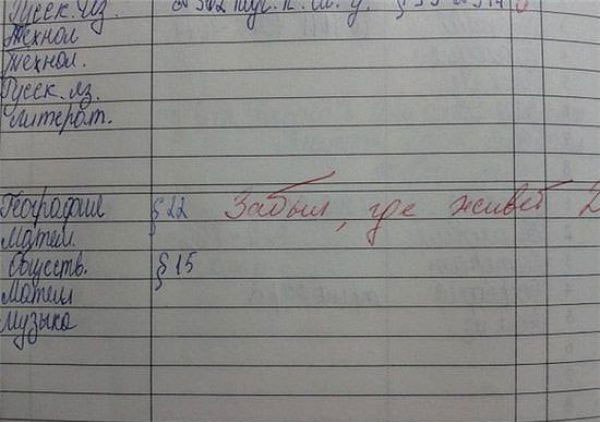 Русск. яз. №
Технол
Технол.
Русск. яз.
Литерат.
География §22 Забыл, где живёт 2
Матем.
Обществ. §15
Матем
Музыка